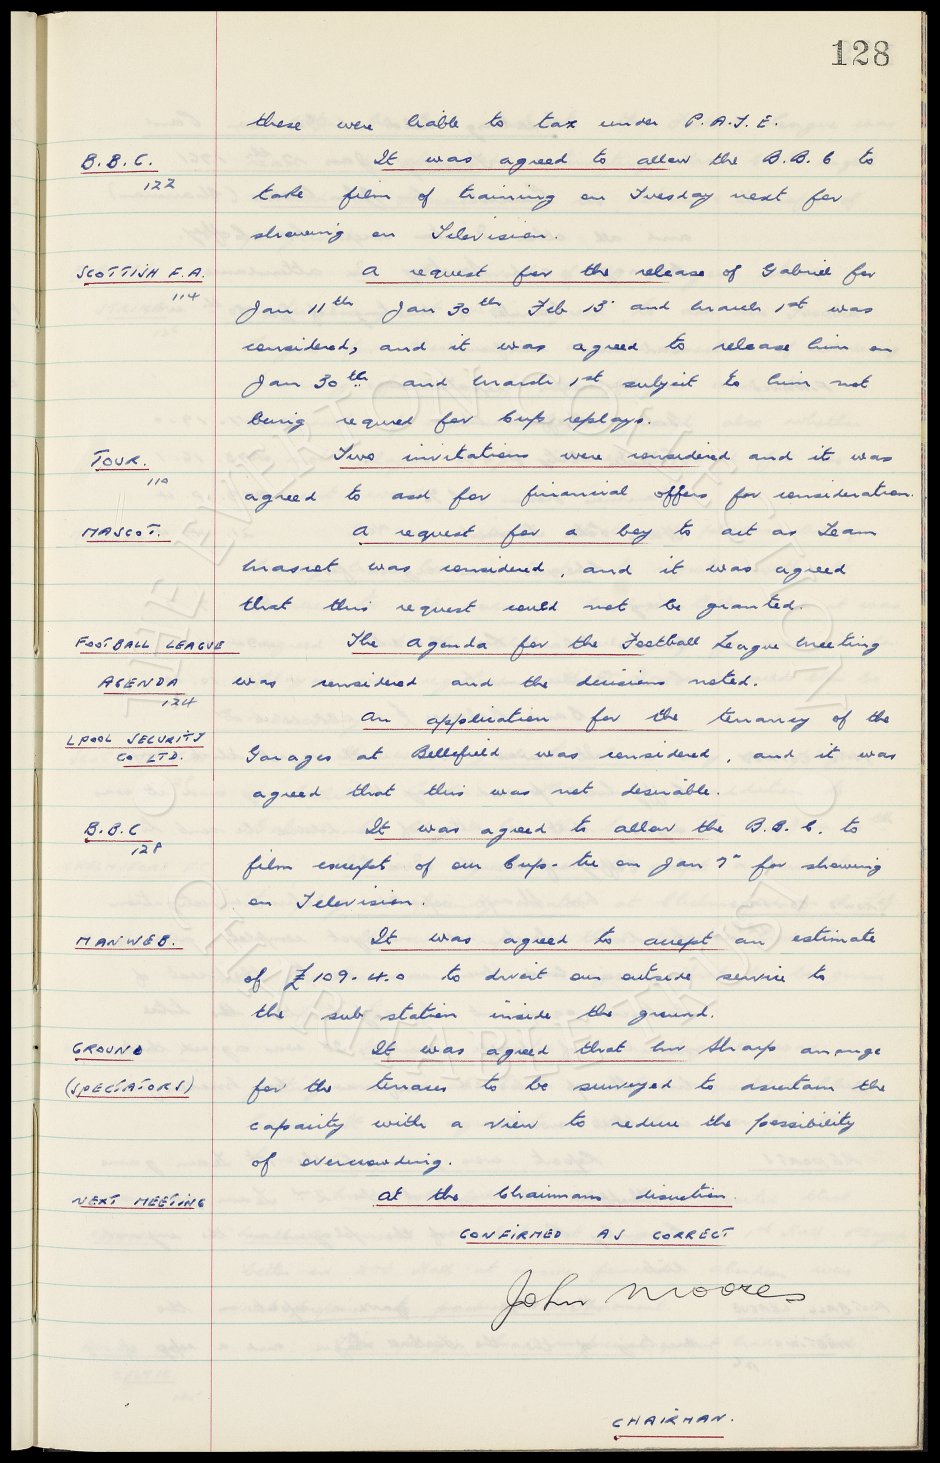 128
these were liable to tax under P.A.Y.E.
B.B.C. It was agreed to allow the B.B.C to
122
take film of training on Tuesday next for
showing on Television.
SCOTTISH F.A. A request for the release of Gabriel for
114
Jan 11th Jan 30th Feb 13 and March 1st was
considered, and it was agreed to release him on
Jan 30th and March 1st subject to him not
being required for Cup replays.
TOUR. Two invitations were considered and it was
110
agreed to ask for financial offers for consideration.
MASCOT. A request for a boy to act as Team
Mascot was considered, and it was agreed
that this request could not be granted.
FOOTBALL LEAGUE The Agenda for the Football League Meeting
AGENDA was considered and the decisions noted.
124
An application for the tenancy of the
LPOOL SECURITY
CO LTD. Garages at Bellefield was considered, and it was
agreed that this was not desirable.
B.B.C It was agreed to allow the B.B.C. to
128
film excerpt of our Cup-tie on Jan 7" for showing
on Television.
MANWEB. It was agreed to accept an estimate
of £109.4.0 to divert our outside service to
the sub station inside the ground.
GROUND It was agreed that Mr Sharp arrange
(SPECTATORS) for the terraces to be surveyed to ascertain the
capacity with a view to reduce the possibility
of overcrowding.
NEXT MEETING At the Chairmans discretion.
CONFIRMED AS CORRECT
John Moores
CHAIRMAN.